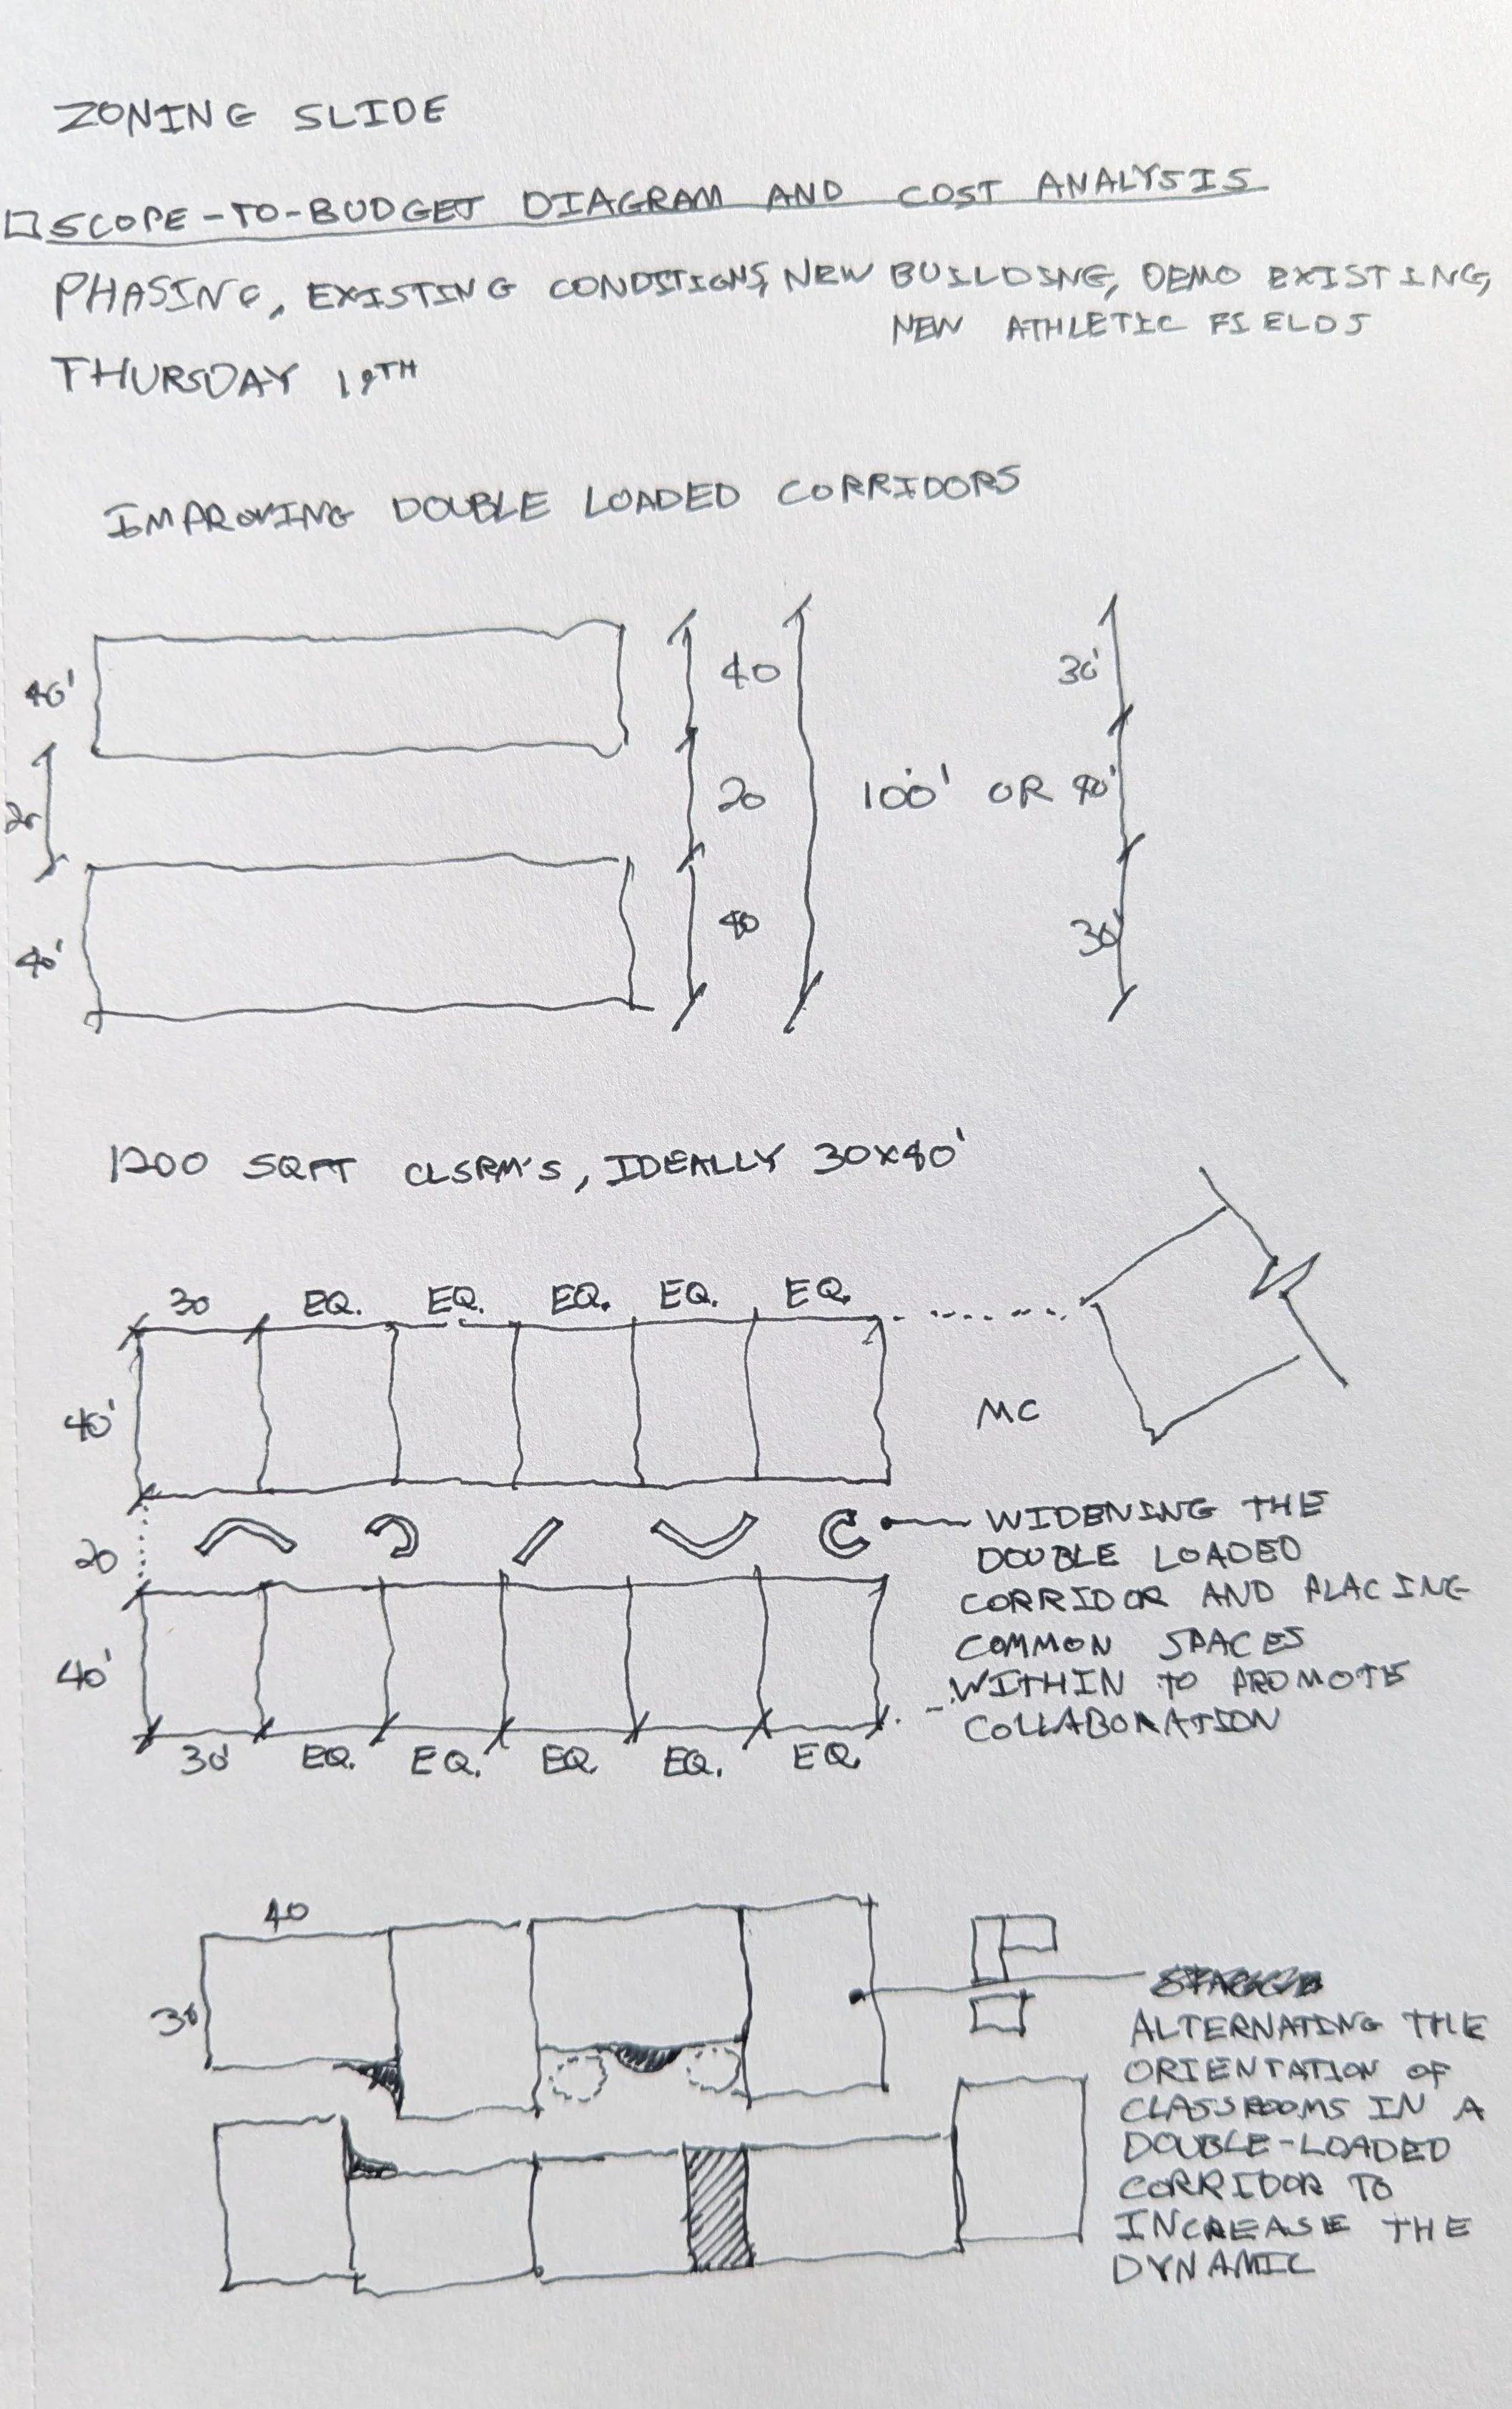 ZONING SLIDE
SCOPE-TO-BUDGET DIAGRAM AND COST ANALYSIS
PHASING, EXISTING CONDITIONS, NEW BUILDING, DEMO EXISTING,
NEW ATHLETIC FIELDS
THURSDAY 19TH
IMPROVING DOUBLE LOADED CORRIDORS
40' 40 30'
20 20 100' OR 40'
40' 40 30'
1200 SQFT CLSRM'S, IDEALLY 30X40'
30 EQ. EQ. EQ. EQ. EQ.
40' MC
20
WIDENING THE
DOUBLE LOADED
CORRIDOR AND PLACING
COMMON SPACES
WITHIN TO PROMOTE
COLLABORATION
40'
30' EQ. EQ. EQ. EQ. EQ.
40
30
ALTERNATING THE
ORIENTATION OF
CLASSROOMS IN A
DOUBLE-LOADED
CORRIDOR TO
INCREASE THE
DYNAMIC